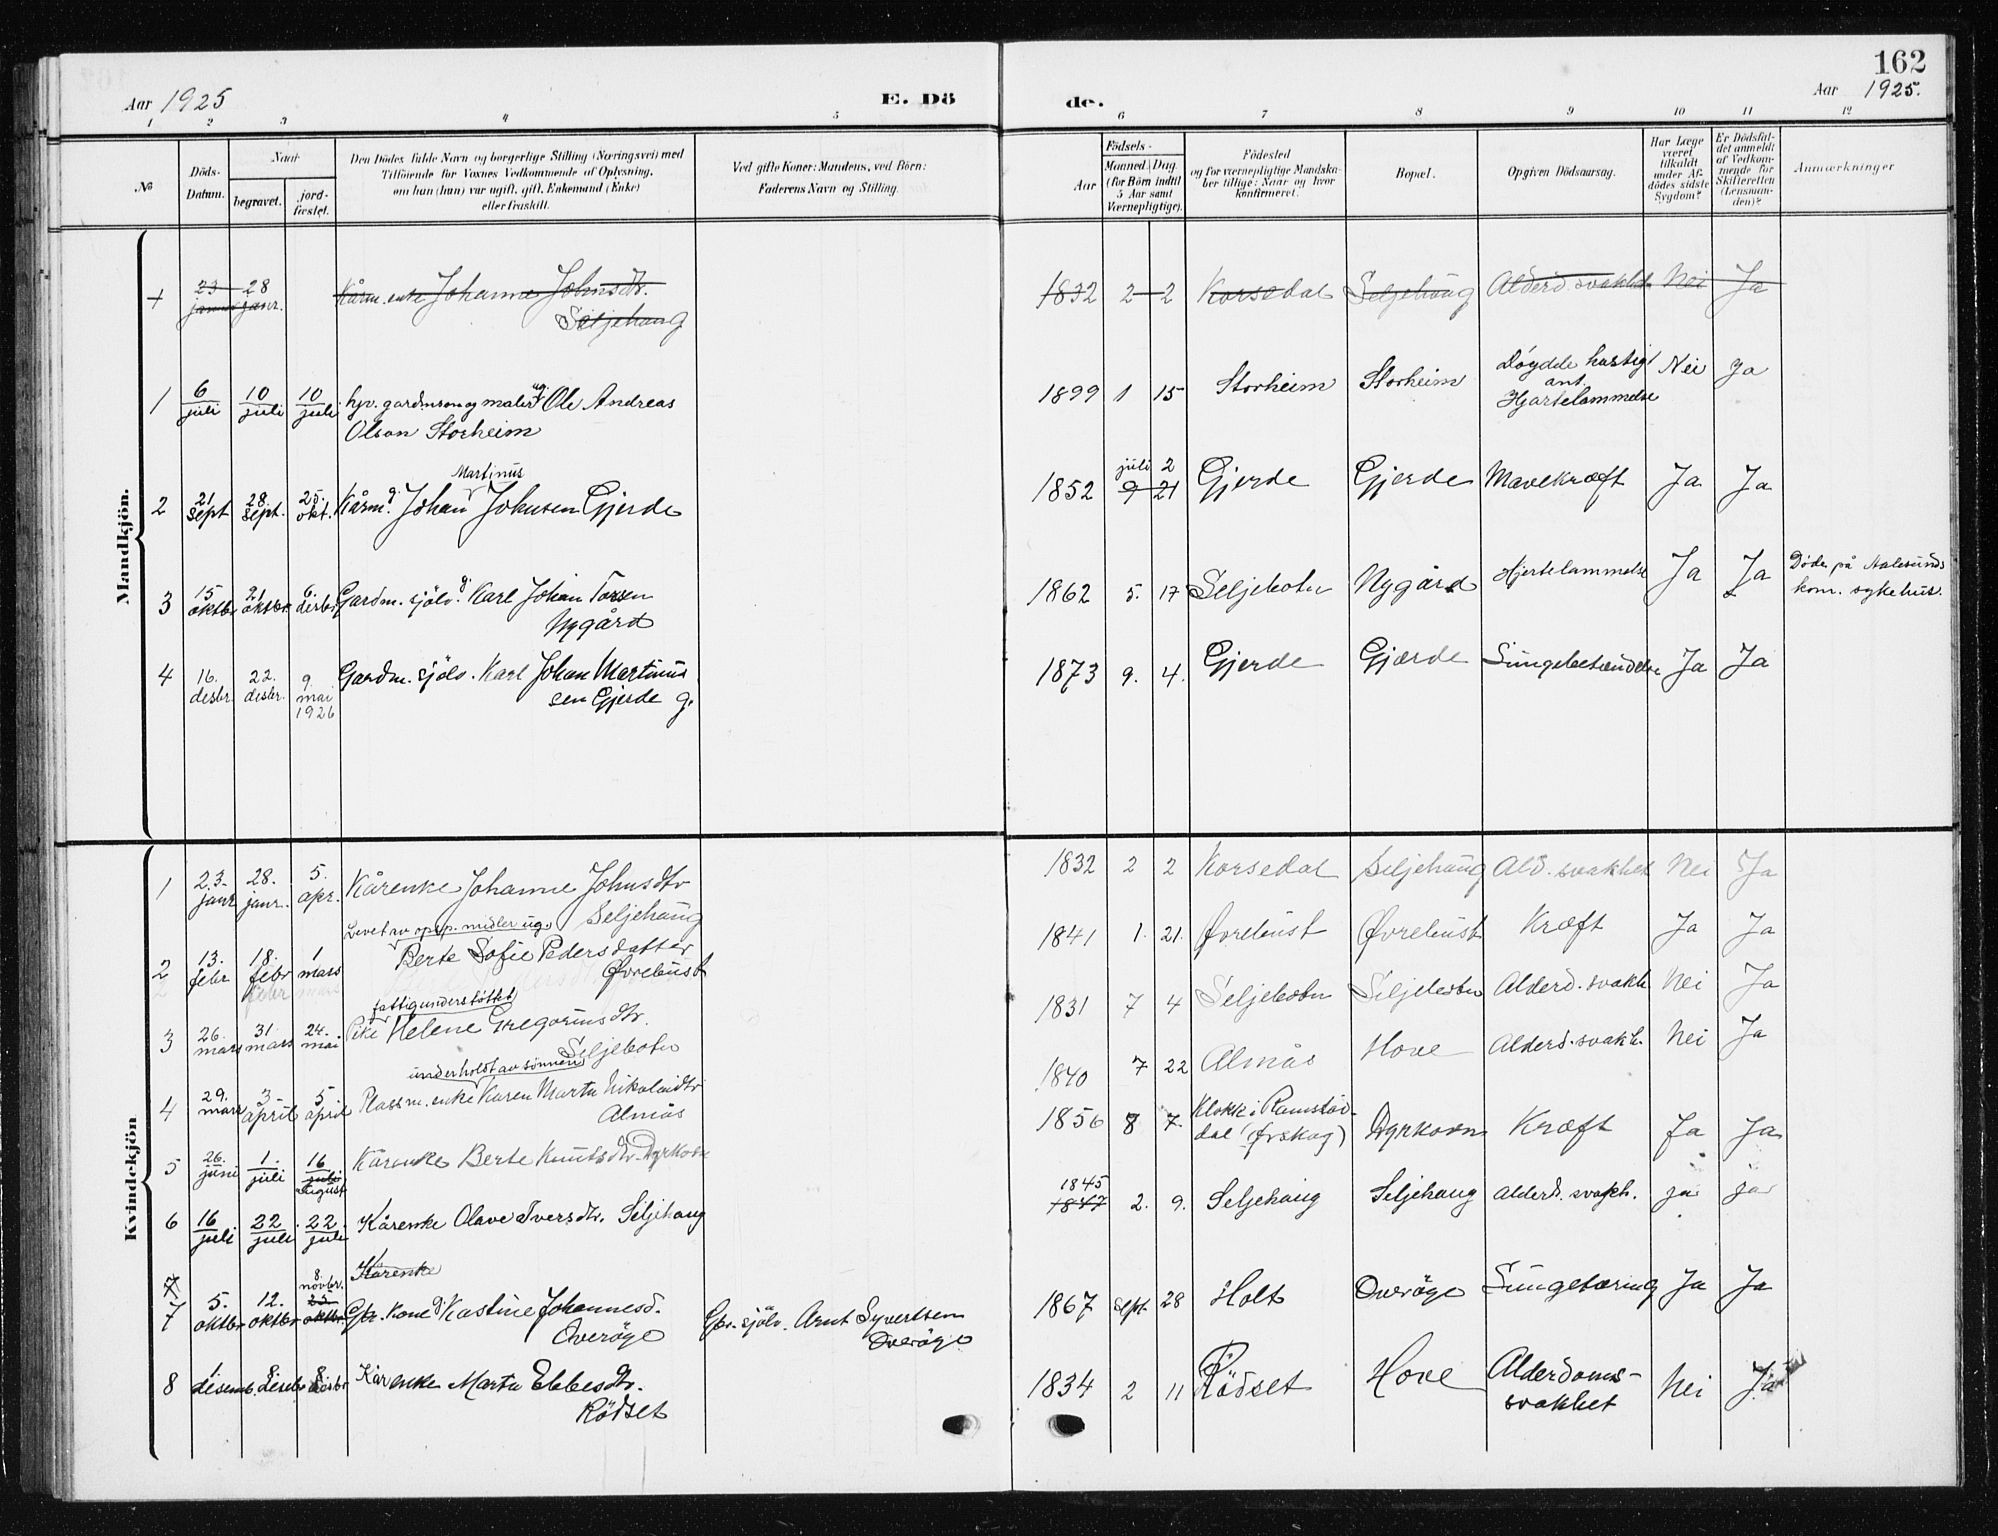 162
Aar 1925
E. Dö
de.
Aar 1925.
1 2 3 4 5 6 7 8 9 10 11 12
No
Döds-
Datum.
Naar
begravet.
jord-
fæstet.
Den Dödes fulde Navn og borgerlige Stilling (Næringsvei) med
Tilföiende for Voxnes Vedkommende af Oplysning,
om han (hun) var ugift, gift, Enkemand (Enke)
eller fraskilt.
Ved gifte Koner: Mandens, ved Börn:
Faderens Navn og Stilling.
Födsels-
Aar
Maaned. Dag
(for Börn indtil
5 Aar samt
Værnepligtige).
Födested
og for værnepligtige Mandska-
ber tillige: Naar og hvor
konfirmeret.
Bopæl.
Opgiven Dödsaarsag.
Har Læge
været
tilkaldt
under Af-
dödes sidste
Sygdom?
Er Dödsfal-
det anmeldt
af Vedkom-
mende for
Skifteretten
(Lensman-
den)?
Anmærkninger
Mandkjön.
1 23 janr 28 janr. Kårm. enke Johanne Johnsdtr. 1832 2 2 Korsedal Seljehaug Alderd. svakhet Nei Ja
Seljehaug
1 6 juli 10 juli 10 juli hjv. gardmson og maler ug. Ole Andreas 1899 1 15 Storheim Storheim Döydde hastigt Nei Ja
Olson Storheim
ant.
Hjartelammelse
Martinus
juli 2
2 21 sept 28 sept. 25. okt. Kårm. g. Johan Johnsen Gjerde 1852 9 21 Gjerde Gjerde Mavekræft Ja Ja
3 15 oktbr 21 oktbr. 6. desbr Gardm. sjölv. g. Karl Johan 1862 5. 17 Seljebotn Nygård Hjertelammelse Ja Ja Döde på Aalesunds
Nygård
kom. sykehus.
4 16. desbr. 22. desbr. 9. mai 1926 Gardm. sjölv. Karl Johan Martinus 1873 9. 4. Gjerde Gjærde Lungebetændelse Ja Ja
sen Gjerde g.
Kvindekjön
1 23. janr 28. janr. 5. apr. Kårenke Johanne Johnsdtr 1832 2 2 Korsedal Seljehaug Ald. svakhet Nei Ja
Seljehaug
Levet av opsp. midler ug.
2 13. febr 18. febr 1 mars Berte Sofie Pedersdatter 1841 1. 21. Øvrebust Øvrebust Kræft Ja Ja
Øvrebust
fattigunderstöttet
3 26. mars 31. mars 24. mai Pike Helene Gregoriusdtr. 1831 7 4 Seljebotn Seljebotn Alderd. svakh. Nei Ja
Seljebotn
underholdt av sönnen
4 29. mars 3. april 5 april Plassm. enke Karen Marta Nikolaidtr 1840 7 22 Almås Hove Alderd. svakh. Nei Ja
Almås
5 26. juni 1. juli 16 juli august Kårenke Berte Knutsdtr. Dyrkorn 1856 8 7. Klokk i Ramstad- Dyrkorn Kræft Ja Ja
dal (Ørskog)
6 16 juli 22 juli 22 juli Kårenke Olave Iversdtr. Seljehaug 1847 1845 2. 9. Seljehaug Seljehaug Alderd. svakh. ja ja
7 Kårenke
7 5. oktbr 12. oktbr 8. novbr. 25. oktbr Gbr. kone g. Kastine Johannesd. Gbr. sjölv. Arnt Syvertsen 1867 sept. 28 Holt Overöye Lungetæring Ja Ja
Overöye Overöye
8 1 desemb. 8 desbr 8 desbr Kårenke Marta Ebbesdtr. 1834 2 11 Rödset Hove Alderdoms- Nei Ja
Rödset svakhet